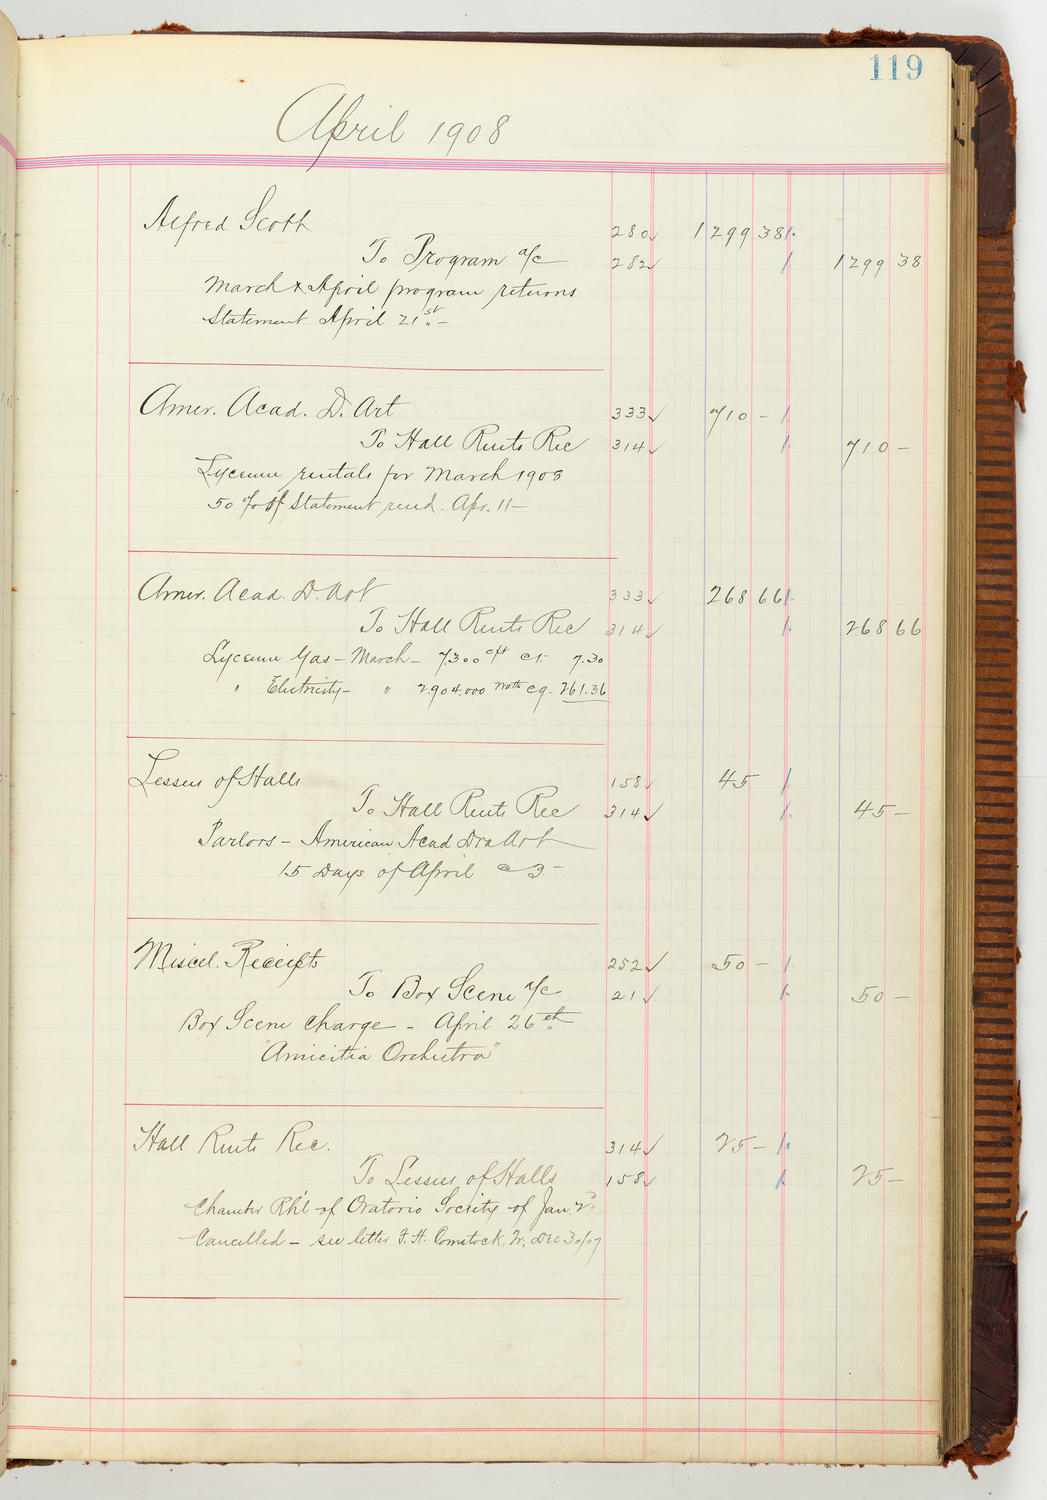 119
April 1908
Alfred Scott 280 ✓ 1299 38
To Program a/c 282 ✓ 1299 38
March & April program returns
Statement April 21st –
Amer. Acad. D. Art 333 ✓ 710 –
To Hall Rents Rec 314 ✓ 710 –
Lyceum rentals for March 1908
50% of Statement rend. Apr. 11 –
Amer. Acad. D. Art 333 ✓ 268 66
To Hall Rents Rec 314 ✓ 268 66
Lyceum Gas – March – 7300 cft @ 1. 7.30
" Electricity – " 2904.000 watts @ 9 – 261.36
Lessees of Halls 158 ✓ 45
To Hall Rents Rec 314 ✓ 45 –
Parlors – American Acad Dra Art
15 Days of April @ 3. –
Miscel. Receipts 252 ✓ 50 –
To Box Scene a/c 21 ✓ 50 –
Box Scene charge – April 26th
"Amicitia Orchestra"
Hall Rents Rec. 314 ✓ 25 –
To Lessees of Halls 158 ✓ 25 –
Chamber Rh'l of Oratorio Society of Jan. 2d
Cancelled – see letter F. H. Comstock, Tr, Dec 30/07